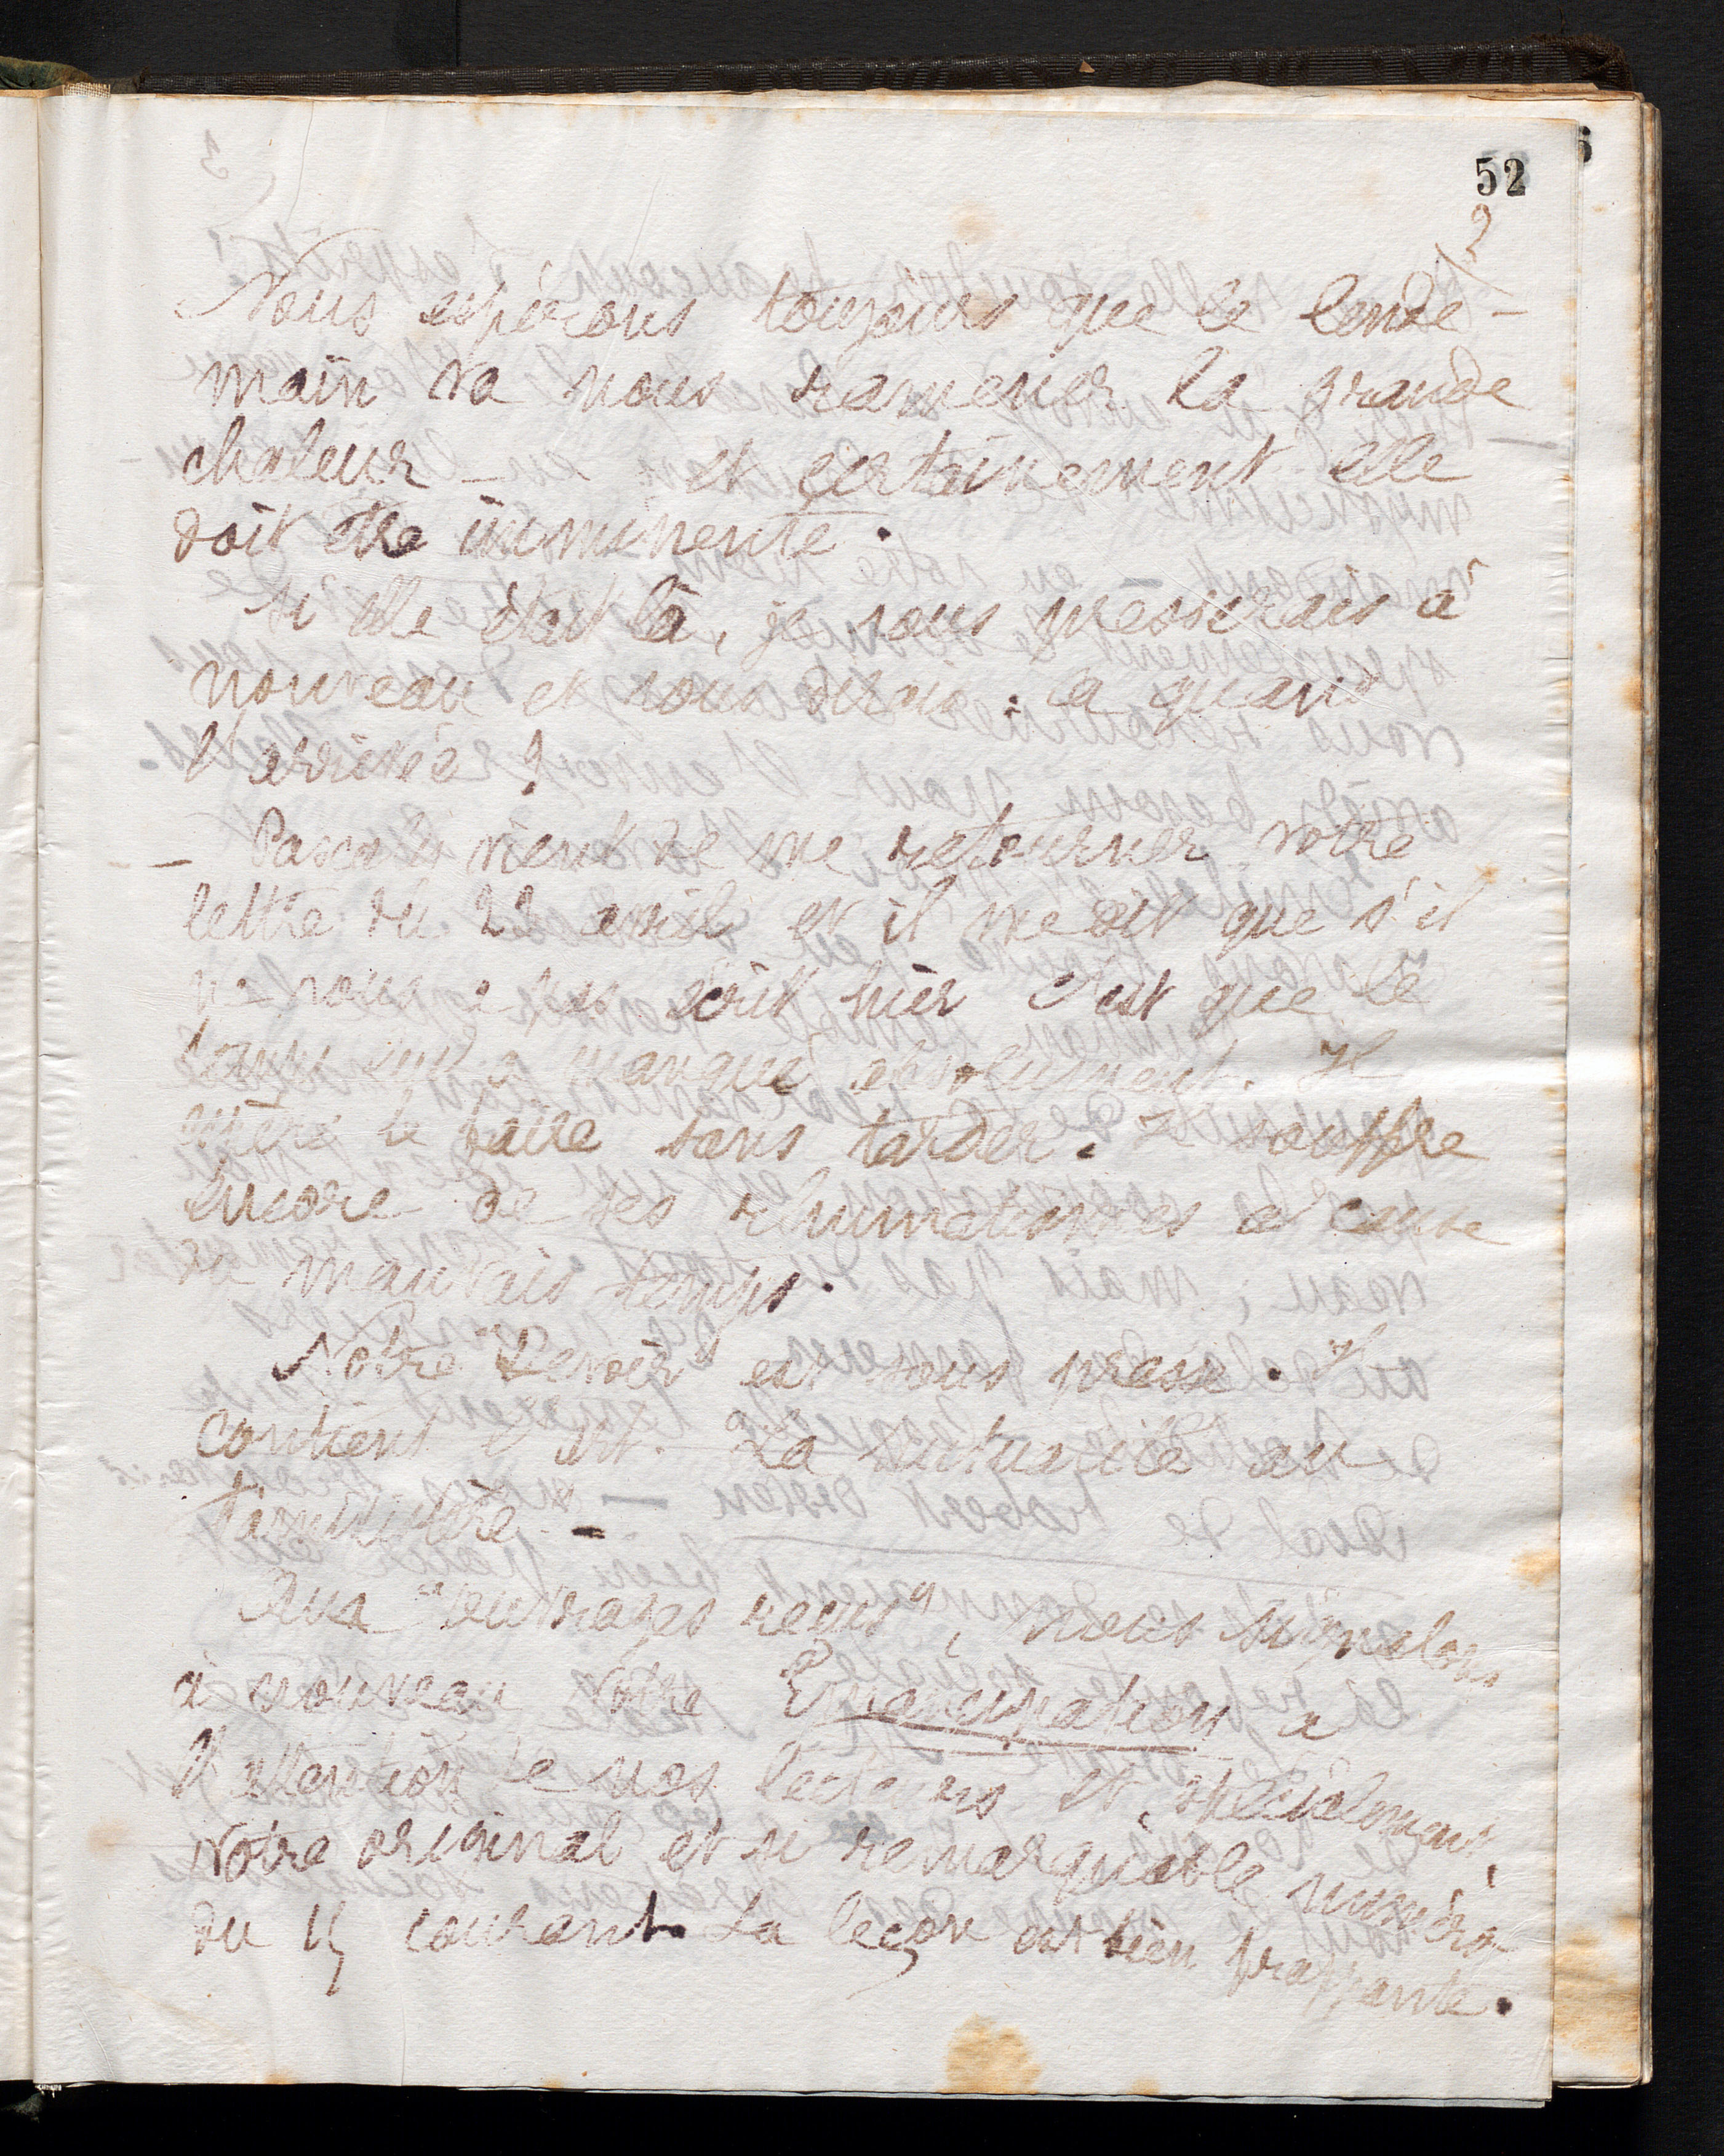 52
2
Nous espérons toujours que le lende-
main va nous ramener la grande
chaleur - et certainement elle
doit être imminente.
Si elle était là, je vous presserais à
nouveau et vous dirais : à quand
l'arrivée ?
- Pascaly vient de me retourner votre
lettre du 22 avril et il me dit que s'il
ne vous a pas écrit hier c'est que le
temps lui a manqué absolument. Il
espère le faire sans tarder. Il souffre
encore de ses rhumatismes à cause
du mauvais temps.
Notre "Devoir" est sous presse. Il
contient l'art. "La Mutualité au
familistère" -
Aux "ouvrages reçus", nous signalons
à nouveau votre Emancipation à
l'attention de nos lecteurs et spécialement,
votre original et si remarquable numéro
du 15 courant. La leçon est bien frappante.